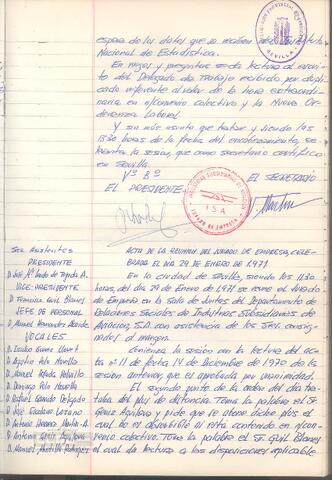 espera de los datos que se reciban del Instituto
Nacional de Estadística.
En ruegos y preguntas se da lectura al escrito
del Delegado de Trabajo recibido por dupli-
cado referente al valor de la hora extraordi-
naria en n/convenio colectivo y la Nueva Or-
denanza Laboral.
Y sin más asunto que tratar y siendo las
13'30 horas de la fecha del encabezamiento, se
levanta la sesión, que como secretario certifico
en Sevilla.
Vº Bº
EL PRESIDENTE
EL SECRETARIO
Sres. Asistentes
PRESIDENTE
D. José Mª
VICE-PRESIDENTE
D. Francisco Guil Blanes
JEFE DE PERSONAL
D. Manuel Fernández
VOCALES
D. Eusebio Gómez
D. Aquilino Polo Novella
D. Manuel
D. Domingo Polo Novella
D. Rafael Garrido Delgado
D. José Escobar Lozano
D. Antonio Herrera Martin-A.
D. Antonio Geniz Aguilera
D. Manuel Montilla Rodriguez
ACTA DE LA REUNION DEL JURADO DE EMPRESA, CELE-
BRADA EL DIA 29 DE ENERO DE 1971
En la ciudad de Sevilla, siendo las 11.30
horas, del día 29 de Enero de 1971 se reune el Jurado
de Empresa en la Sala de Juntas del Departamento de
Relaciones Sociales de Industrias Subsidiarias de
Aviación, S.A. con asistencia de los Sres. consig-
nados al margen.
Comienza la sesión con la lectura del ac-
ta nº 11 de fecha 14 de Diciembre de 1970 de la
sesión anterior, que es aprobada por unanimidad.
El segundo punto de la orden del día tra-
taba del plus de distancia. Toma la palabra el Sr.
Geniz Aguilera y pide que se abone dicho plus el
cual no es absorbible al esta contenido en n/con-
venio colectivo. Toma la palabra el Sr. Guil Blanes
el cual da lectura a las disposiciones aplicables.